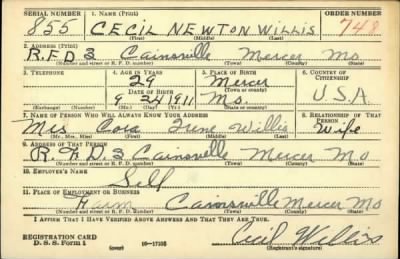 SERIAL NUMBER 1. NAME (Print) ORDER NUMBER
855 CECIL NEWTON WILLIS 748
(First) (Middle) (Last)
2. ADDRESS (Print)
R.F.D 3 Cainsville Mercer Mo
(Number and street or R. F. D. number) (Town) (County) (State)
3. TELEPHONE 4. AGE IN YEARS 5. PLACE OF BIRTH 6. COUNTRY OF CITIZENSHIP
29 Mercer
DATE OF BIRTH (Town or county)
9 24 1911 Mo. U.S.A
(Exchange) (Number) (Mo.) (Day) (Yr.) (State or country)
7. NAME OF PERSON WHO WILL ALWAYS KNOW YOUR ADDRESS 8. RELATIONSHIP OF THAT PERSON
Mrs Cora Irene Willis Wife
(Mr., Mrs., Miss) (First) (Middle) (Last)
9. ADDRESS OF THAT PERSON
R.F.D. 3 Cainsville Mercer Mo
(Number and street or R. F. D. number) (Town) (County) (State)
10. EMPLOYER'S NAME
Self
11. PLACE OF EMPLOYMENT OR BUSINESS
Farm Cainsville Mercer Mo
(Number and street or R. F. D. number) (Town) (County) (State)
I AFFIRM THAT I HAVE VERIFIED ABOVE ANSWERS AND THAT THEY ARE TRUE.
REGISTRATION CARD
D. S. S. Form 1 (over) 16-17105 Cecil Willis
(Registrant's signature)